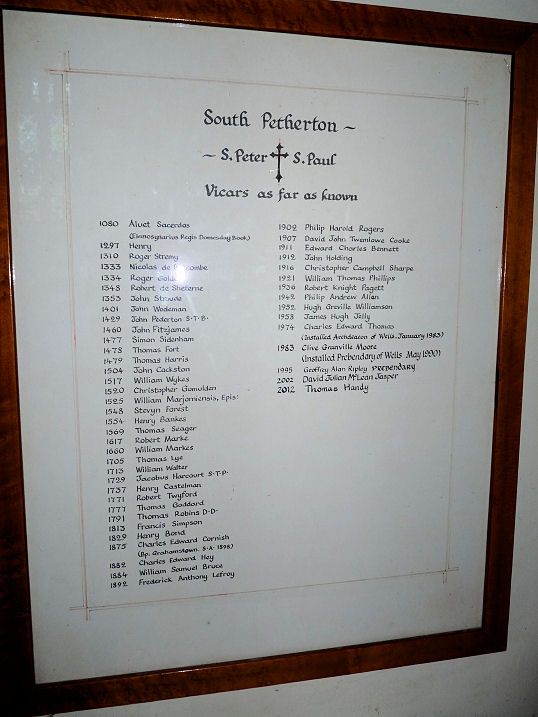 South Petherton ~
~ S. Peter S. Paul
Vicars as far as known
1080 Aluet Sacerdos
(Elemosynarius Regis Domesday Book)
1297 Henry
1310 Roger
1333 Nicolas de
1334 Roger
1348 Robert de Sheterne
1353 John Stroude
1401 John Wodeman
1429 John Pederton S.T.B.
1460 John Fitzjames
1477 Simon Sidenham
1478 Thomas Fort
1479 Thomas Harris
1504 John Cockston
1517 William Wykes
1520 Christopher
1525 William Marjoniensis, Epis:
1548 Stevyn Forest
1554 Henry Bankes
1569 Thomas Seager
1617 Robert Marke
1660 William Markes
1705 Thomas Lye
1713 William Walter
1729 Jacobus Harcourt S.T.P.
1737 Henry Castelman
1771 Robert Twyford
1777 Thomas Goddard
1791 Thomas Robins D.D.
1813 Francis Simpson
1829 Henry Bond
1875 Charles Edward Cornish
(Bp. Grahamstown. S.A. 1898)
1882 Charles Edward Hey
1884 William Samuel Bruce
1892 Frederick Anthony Lefroy
1902 Philip Harold Rogers
1907 David John Twemlowe Cooke
1911 Edward Charles Bennett
1912 John Holding
1916 Christopher Campbell Sharpe
1921 William Thomas Phillips
1936 Robert Knight Pagett
1942 Philip Andrew Allen
1952 Hugh Greville Williamson
1958 James Hugh Jelly
1974 Charles Edward Thomas
(Installed Archdeacon of Wells, January 1983)
1983 Clive Granville Moore
(Installed Prebendary of Wells May 1990)
1995 Geoffrey Alan Ripley PREBENDARY
2002 David Julian McLean Jasper
2012 Thomas Handy